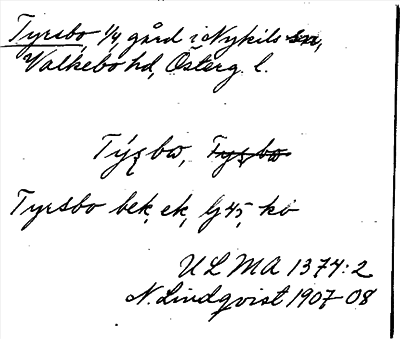 Tyrsbo, 1/4, gård i Nykils sn,
Valkebo hd, Österg. l.
Tyrsbo bek, ek, lj 45, ko
ULMA 1374:2
N. Lindqvist 1907-08